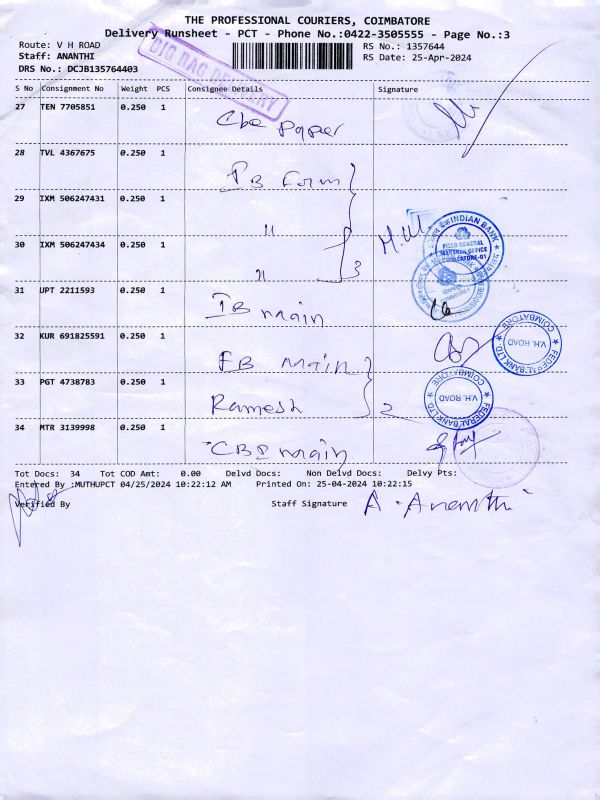 THE PROFESSIONAL COURIERS, COIMBATORE
Delivery Runsheet - PCT - Phone No.:0422-3505555 - Page No.:3
Route: V H ROAD
RS No.: 1357644
Staff: ANANTHI
RS Date: 25-Apr-2024
DRS No.: DCJB135764403
BIG BAG DELIVERY
S No Consignment No Weight PCS Consignee Details Signature
27 TEN 7705851 0.250 1
Cbe Paper
28 TVL 4367675 0.250 1
IB Form
29 IXM 506247431 0.250 1
"
30 IXM 506247434 0.250 1
" 3
INDIAN BANK
FIELD GENERAL
MANAGER OFFICE
COIMBATORE-01
31 UPT 2211593 0.250 1
IB main
32 KUR 691825591 0.250 1
FB main
FEDERAL BANK LTD
V.H. ROAD
COIMBATORE
33 PGT 4738783 0.250 1
Ramesh 2
FEDERAL BANK LTD
V.H. ROAD
COIMBATORE
34 MTR 3139998 0.250 1
CBE main
Tot Docs: 34 Tot COD Amt: 0.00 Delvd Docs: Non Delvd Docs: Delvy Pts:
Entered By :MUTHUPCT 04/25/2024 10:22:12 AM Printed On: 25-04-2024 10:22:15
Verified By Staff Signature A. Ananthi